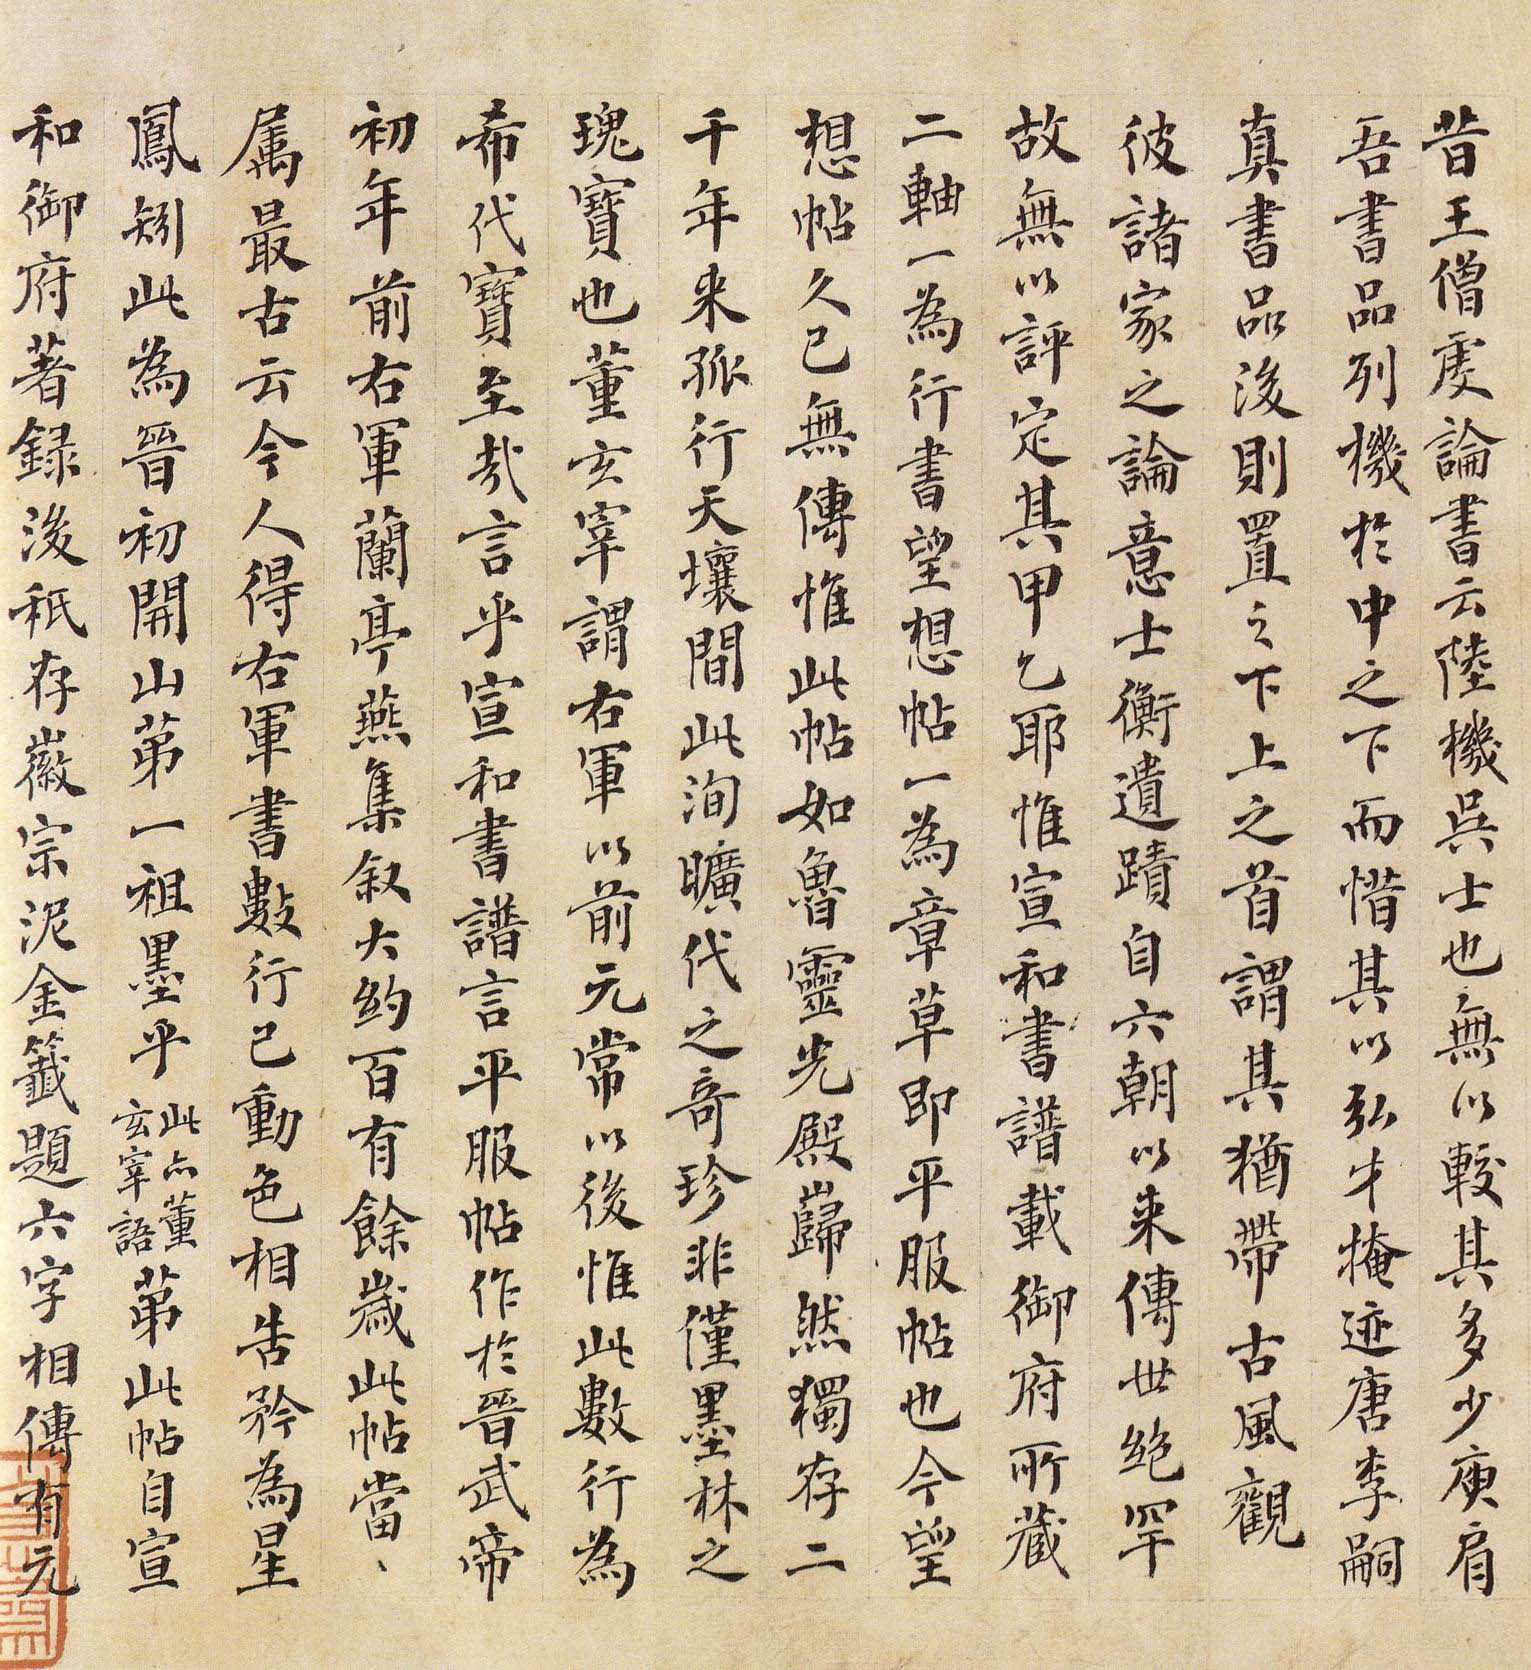 昔王僧虔論書云陸機吳士也無以較其多少庾肩
吾書品列機於中之下而惜其以弘才掩迹唐李嗣
真書品後則置之下上之首謂其猶帶古風觀
彼諸家之論意士衡遺蹟自六朝以来傳世絶罕
故無以評定其甲乙耶惟宣和書譜載御府所藏
二軸一為行書望想帖一為章草即平服帖也今望
想帖久已無傳惟此帖如魯靈光殿巋然獨存二
千年来孤行天壤間此洵曠代之奇珍非僅墨林之
瑰寶也董玄宰謂右軍以前元常以後惟此數行為
希代寶至哉言乎宣和書譜言平服帖作於晉武帝
初年前右軍蘭亭燕集叙大約百有餘嵗此帖當、
属最古云今人得右軍書數行已動色相告矜為星
鳳矧此為晉初開山苐一祖墨乎此亦董玄宰語苐此帖自宣
和御府著録後秖存徽宗泥金籤題六字相傳有元